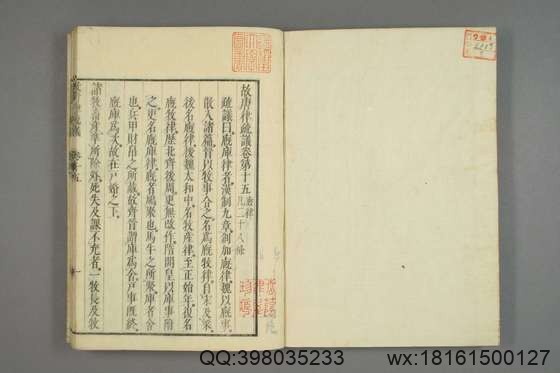 故唐律疏議卷第十五 廄律 凡二十八條
疏議曰廄庫律者漢制九章創加廄律魏以廄事
散入諸篇晉以牧事合之名為廄牧律自宋及梁
復名廄律後魏太和中名牧產律至正始年復名
廄牧律歷北齊後周更無改作隋開皇以庫事附
之更名廄庫律廄者鳩聚也馬牛之所聚庫者舍
也兵甲財帛之所藏故齊魯謂庫為舍戶事既終
廄庫為次故在戶婚之下
諸牧畜產準所除外死失及課不充者一牧長及牧
QQ:398035233
wx:18161500127